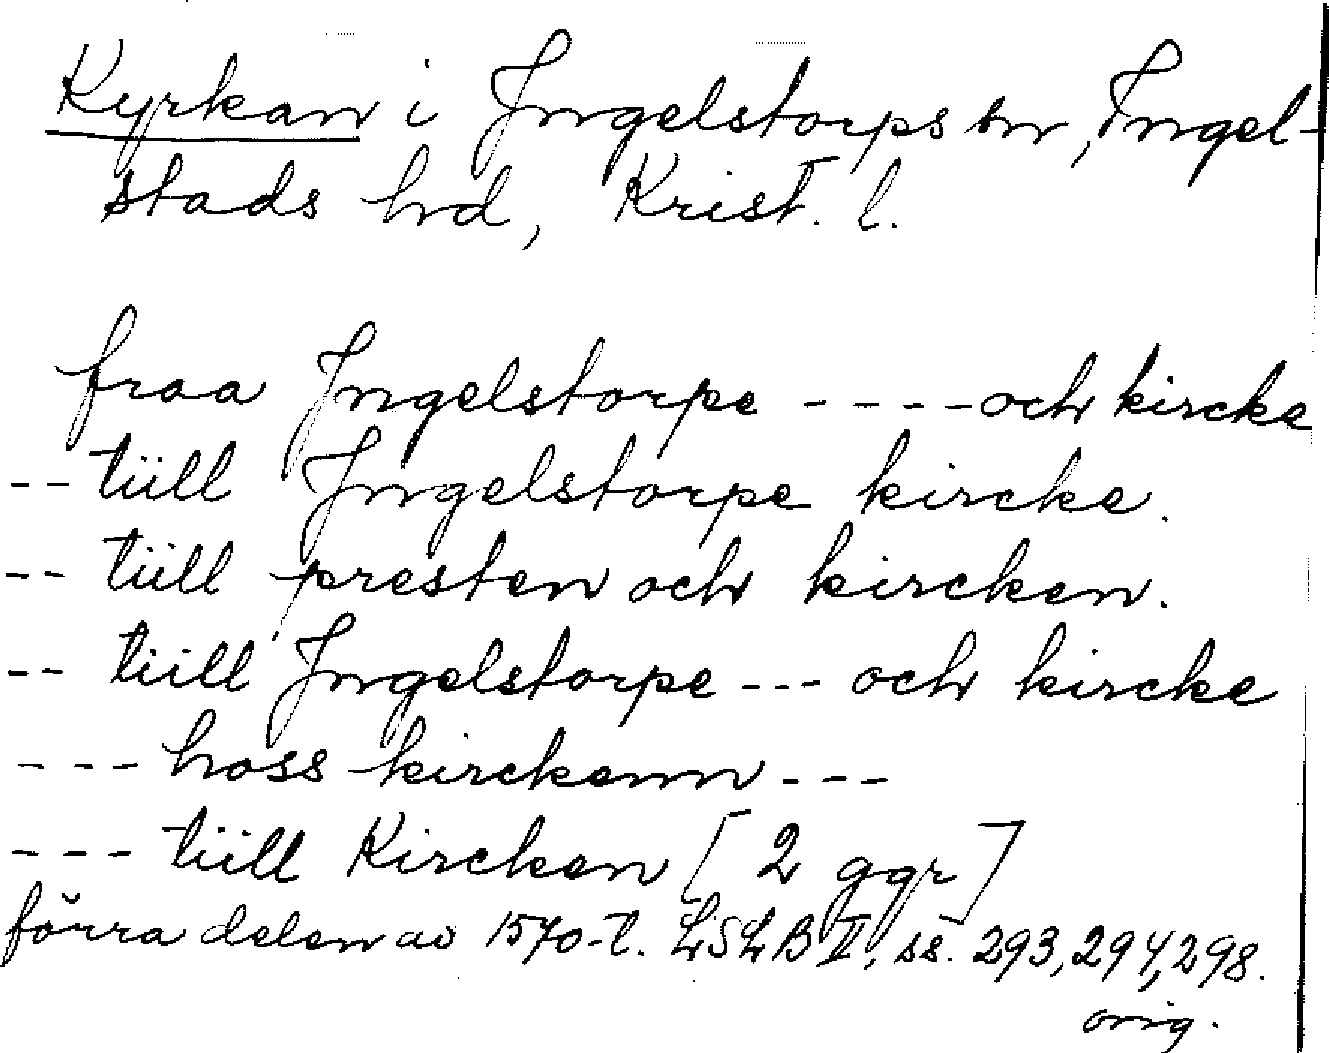 Kyrkan i Ingelstorps sn, Ingel-
stads hrd, Krist. l.
fraa Ingelstorpe ---- och kircke
-- tiill Ingelstorpe kircke.
-- tiill presten och kircken.
-- tiill Ingelstorpe --- och kircke
--- hoss kirckenn ---
--- tiill Kircken [2 ggr]
förra delen av 1570-t. LSLB II, ss. 293, 294, 298.
orig.